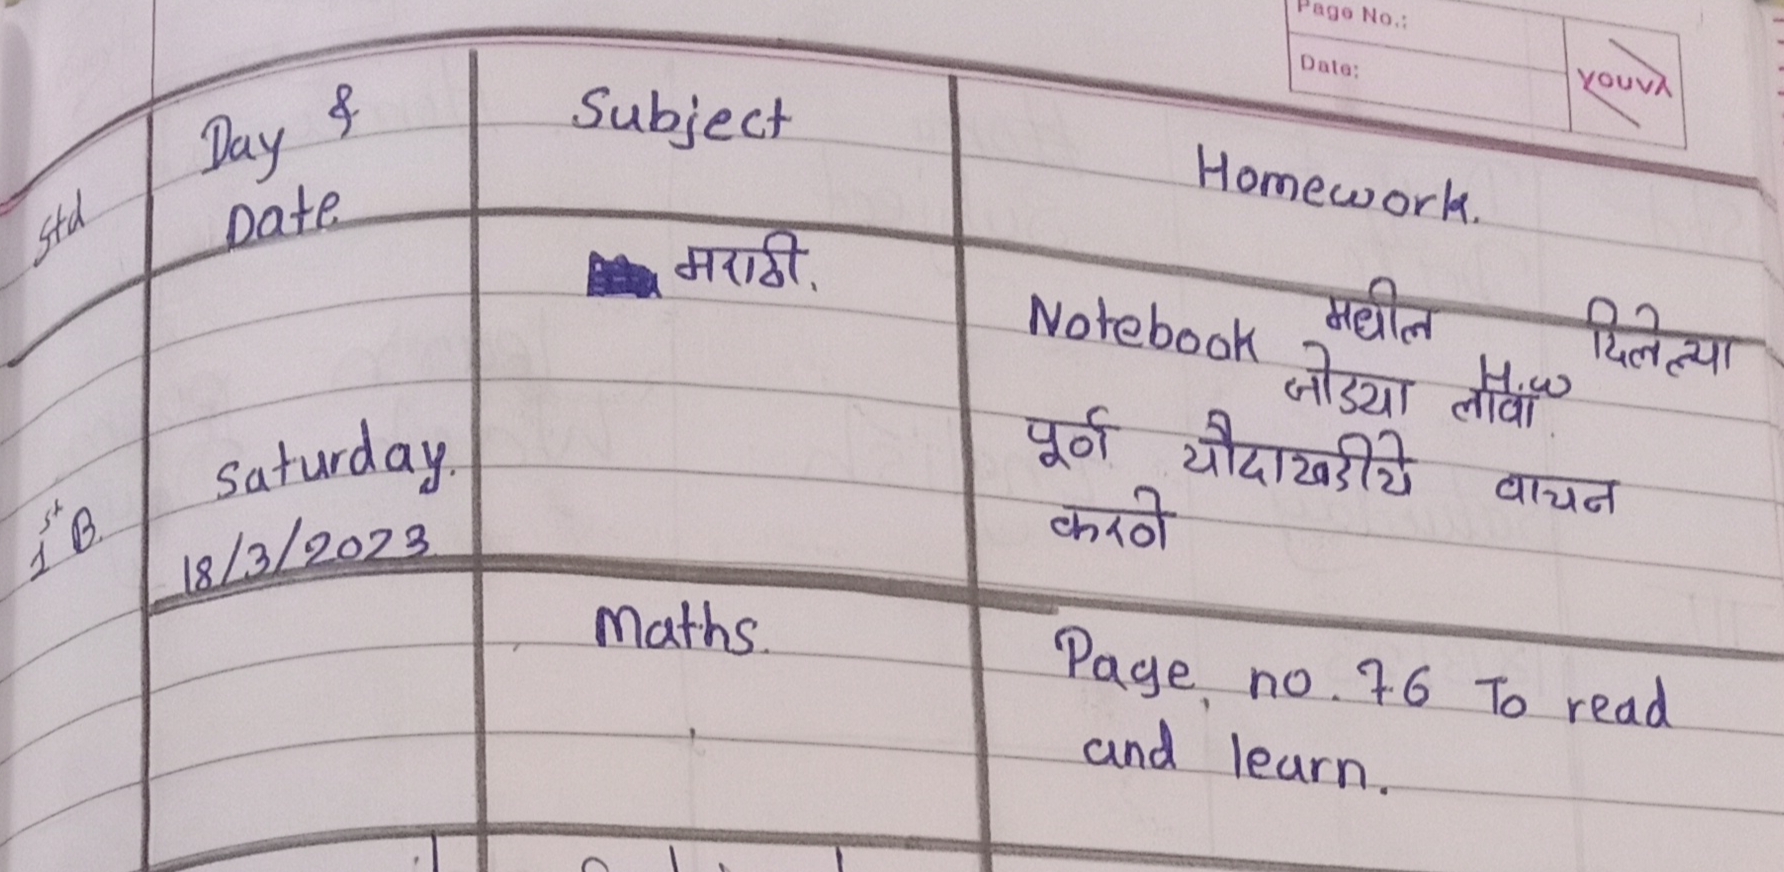 Page No.:
Date:
YOUVA
Std
Day &
Date
Subject
Homework.
मराठी.
Notebook मधील दिलेल्या H.w
जोडया लावा.
पूर्ण चौदाखडीचे वाचन
करणे
1st B.
Saturday.
18/3/2023
Maths.
Page no. 76 To read
and learn.